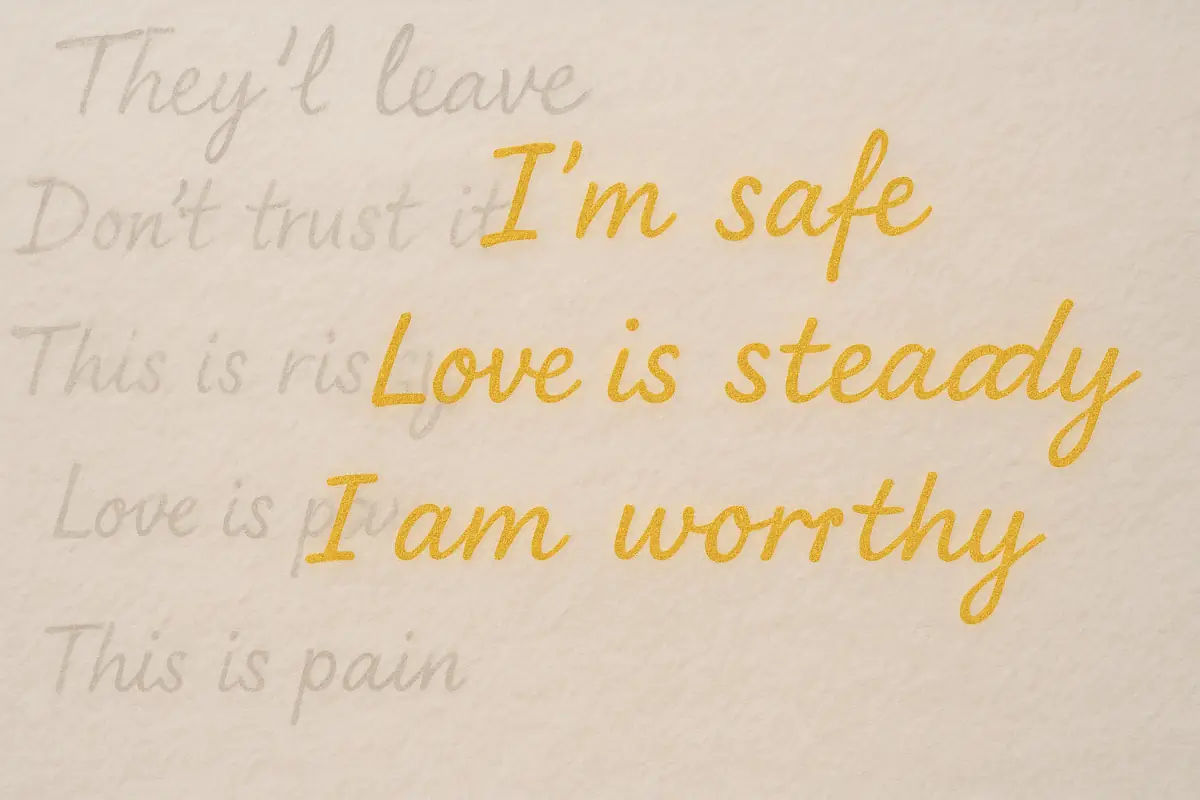 They'l leave
I'm safe
Don't trust it
Love is steaady
This is
I am worrthy
Love is
This is pain